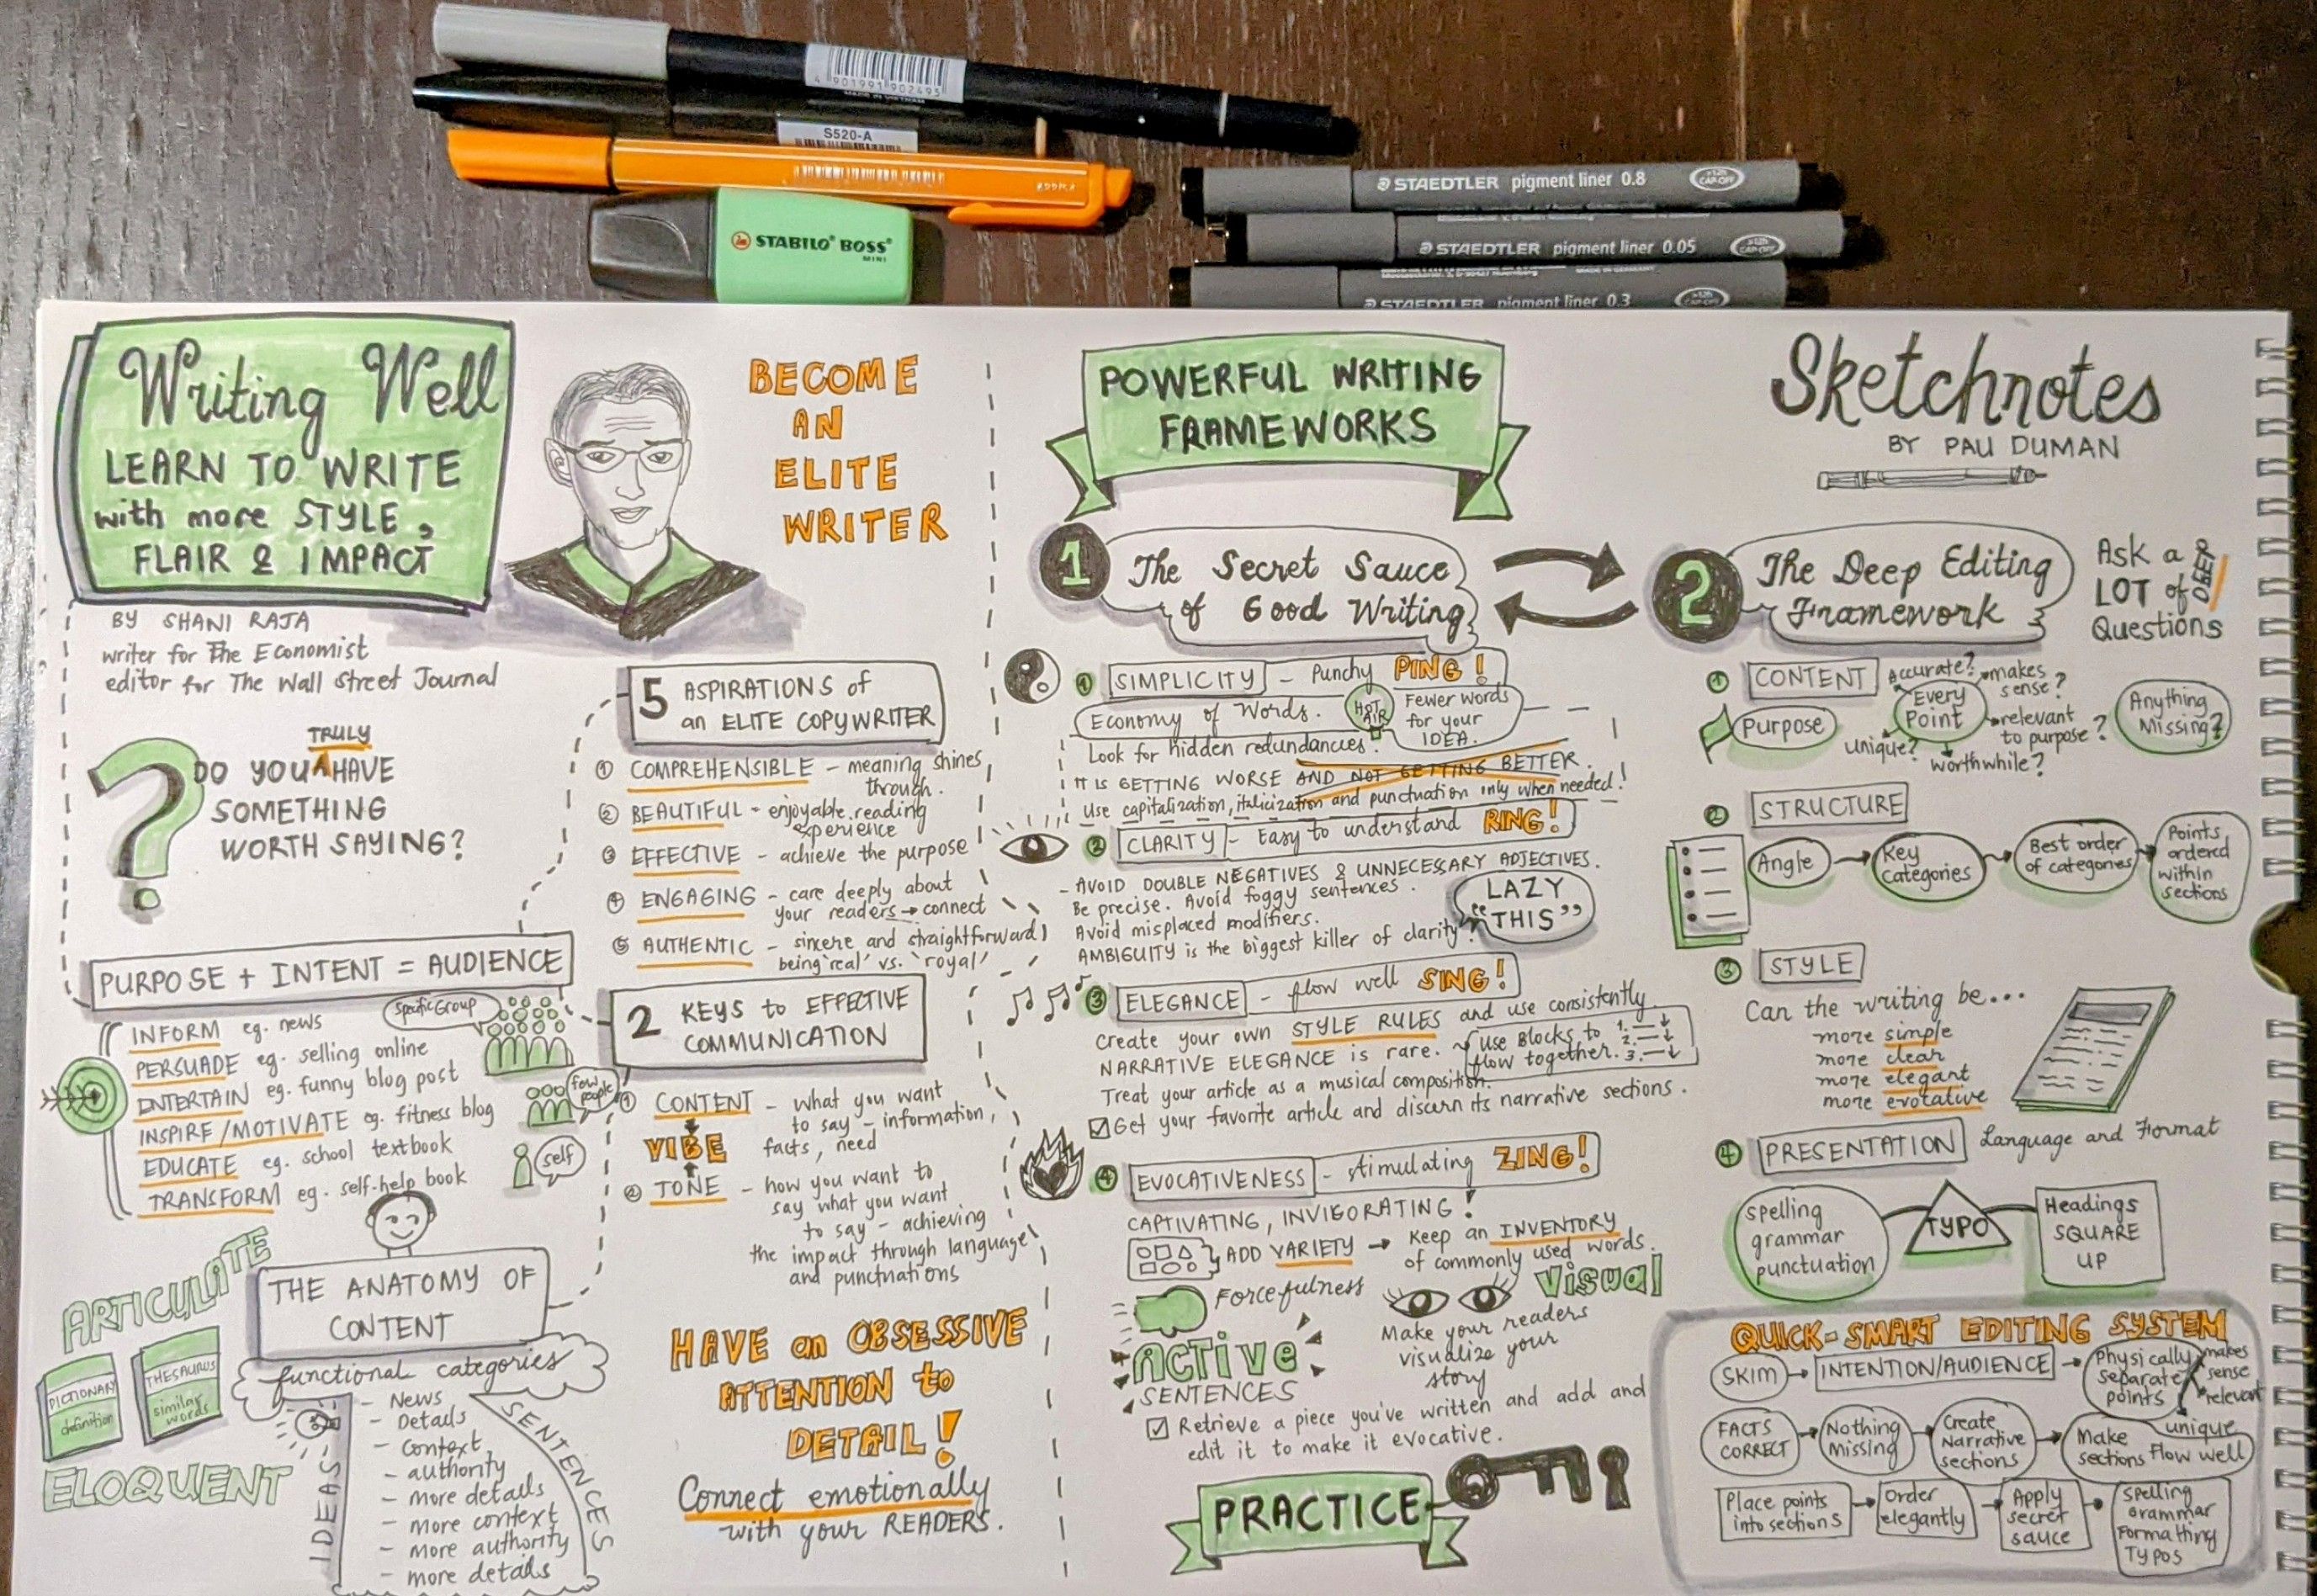 4 901991 902495
MADE IN VIETNAM
S520-A
STABILO BOSS
MINI
STAEDTLER pigment liner 0.8
STAEDTLER pigment liner 0.05
STAEDTLER pigment liner 0.3
MADE IN GERMANY
Writing Well
LEARN TO WRITE
with more STYLE,
FLAIR & IMPACT
BY SHANI RAJA
writer for The Economist
editor for The Wall Street Journal
BECOME
AN
ELITE
WRITER
TRULY
DO YOU HAVE
SOMETHING
WORTH SAYING?
PURPOSE + INTENT = AUDIENCE
INFORM eg. news
PERSUADE eg. selling online
ENTERTAIN eg. funny blog post
INSPIRE/MOTIVATE eg. fitness blog
EDUCATE eg. school textbook
TRANSFORM eg. self-help book
Specific Group
few
people
self
ARTICULATE
DICTIONARY
definition
THESAURUS
similar
words
ELOQUENT
THE ANATOMY OF
CONTENT
functional categories
IDEAS
- News
- Details
- Context
- authority
- more details
- more context
- more authority
- more details
SENTENCES
5 ASPIRATIONS of
an ELITE COPYWRITER
1 COMPREHENSIBLE - meaning shines
through.
2 BEAUTIFUL - enjoyable reading
experience
3 EFFECTIVE - achieve the purpose
4 ENGAGING - care deeply about
your readers → connect
5 AUTHENTIC - sincere and straightforward
being 'real' vs. 'royal'
2 KEYS to EFFECTIVE
COMMUNICATION
1 CONTENT - what you want
to say - information,
facts, need
VIBE
2 TONE - how you want to
say what you want
to say - achieving
the impact through language
and punctuations
HAVE an OBSESSIVE
ATTENTION to
DETAIL!
Connect emotionally
with your READERS.
POWERFUL WRITING
FRAMEWORKS
1 The Secret Sauce
of Good Writing
1 SIMPLICITY - Punchy PING!
Economy of Words.
HOT
AIR
Fewer words
for your
IDEA.
Look for hidden redundancies.
IT IS GETTING WORSE AND NOT GETTING BETTER.
Use capitalization, italicization and punctuation only when needed!
2 CLARITY - Easy to understand RING!
- AVOID DOUBLE NEGATIVES & UNNECESSARY ADJECTIVES.
Be precise. Avoid foggy sentences.
Avoid misplaced modifiers.
AMBIGUITY is the biggest killer of clarity.
LAZY
"THIS"
3 ELEGANCE - flow well SING!
Create your own STYLE RULES and use consistently.
NARRATIVE ELEGANCE is rare.
use Blocks to
flow together.
1.
2.
3.
Treat your article as a musical composition.
Get your favorite article and discern its narrative sections.
4 EVOCATIVENESS - stimulating ZING!
CAPTIVATING, INVIGORATING!
ADD VARIETY → Keep an INVENTORY
of commonly used words.
Forcefulness
ACTIVE
SENTENCES
Visual
Make your readers
visualize your
story
Retrieve a piece you've written and add and
edit it to make it evocative.
PRACTICE
Sketchnotes
BY PAU DUMAN
2 The Deep Editing
Framework
Ask a
LOT of DEEP
Questions
1 CONTENT
Purpose
Every
Point
Accurate?
makes
sense?
relevant
to purpose?
unique?
worthwhile?
Anything
Missing?
2 STRUCTURE
Angle
Key
Categories
Best order
of categories
Points
ordered
within
sections
3 STYLE
Can the writing be...
more simple
more clear
more elegant
more evocative
4 PRESENTATION Language and Format
spelling
grammar
punctuation
TYPO
Headings
SQUARE
UP
QUICK-SMART EDITING SYSTEM
SKIM
INTENTION/AUDIENCE
Physically
separate
points
makes
sense
relevant
unique
FACTS
CORRECT
Nothing
Missing
Create
Narrative
sections
Make
sections flow well
Place points
into sections
Order
elegantly
Apply
secret
sauce
Spelling
Grammar
Formatting
Typos